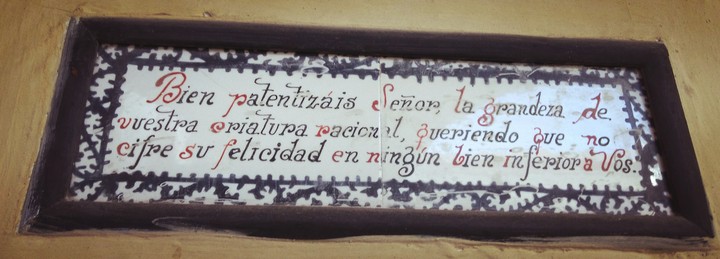 Bien patentizáis Señor, la grandeza de
vuestra criatura racional, queriendo que no
cifre su felicidad en ningún bien inferior a Vos.